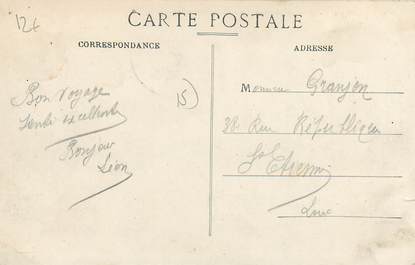 12€
CARTE POSTALE
CORRESPONDANCE
ADRESSE
Bon voyage
Santé excellente
Bonjour
Léon
15)
Monsieur Granjon
38 Rue République
St Etienne
Loire